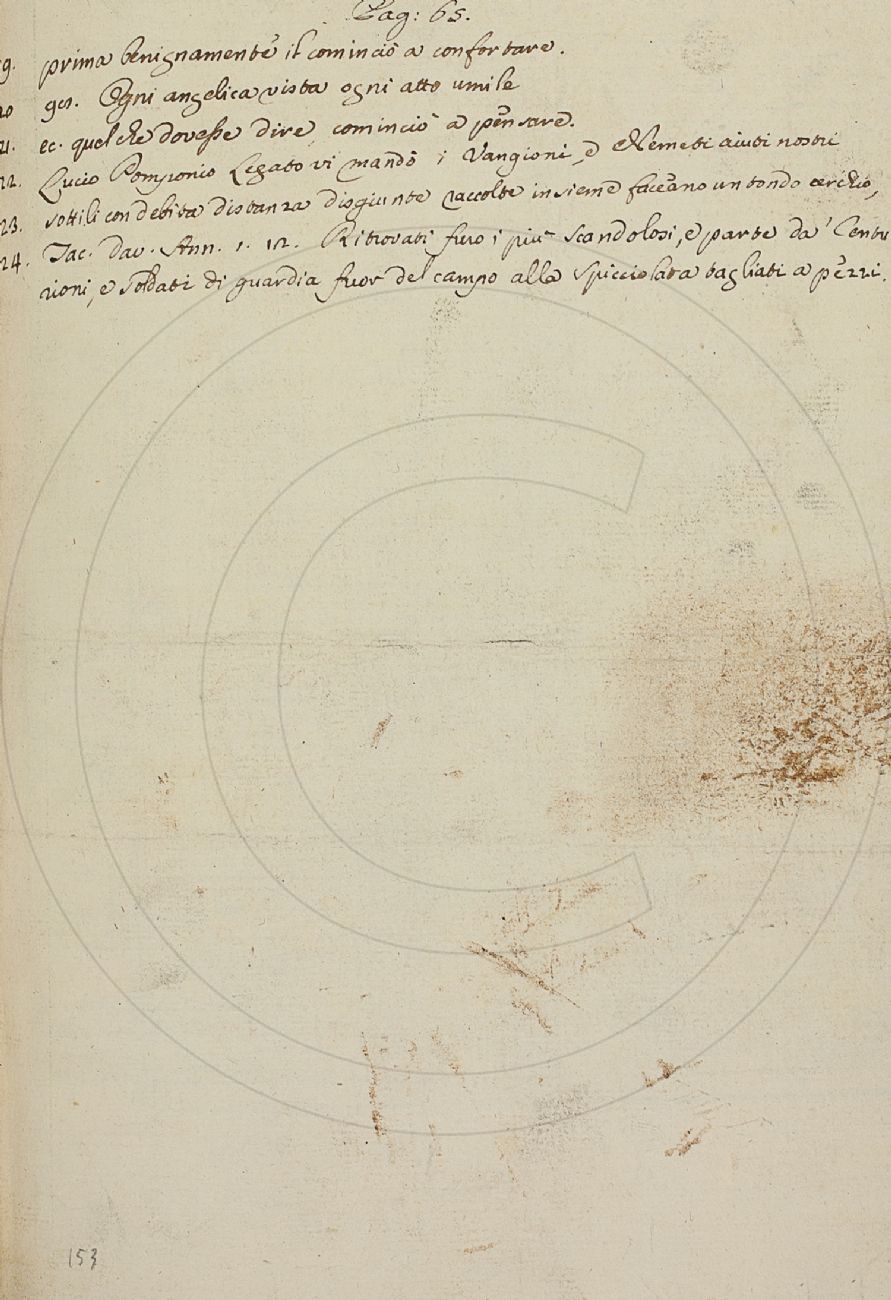 Pag: 65.
19. prima benignamente il cominciò a confortare.
20 901. Ogni angelica vista ogni atto umile
21. ec. quel che dovesse dire, cominciò a pensare.
22. Lucio Pomponio Legato vi mandò i Vangioni, e Nemeti aiuti nostri
23. sottili con debita distanza disgiunte raccolte insieme faceano un tondo cerchio,
24. Tac. Dav. Ann. 1. 12. Ritrovati furo i più scandolosi, e parte da' Centu
rioni, e soldati di guardia fuor del campo alla spicciolata tagliati a pezzi.
153